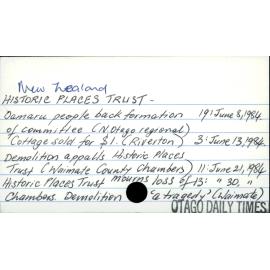 New Zealand
HISTORIC PLACES TRUST -
Oamaru people back formation 19: June 8, 1984
of committee (N. Otago regional)
Cottage sold for $1. (Riverton) 3: June 13, 1984
Demolition appalls Historic Places
Trust (Waimate County Chambers) 11: June 21, 1984
Historic Places Trust mourns loss of 13: " 30, "
Chambers. Demolition 'a tragedy' (Waimate)
OTAGO DAILY TIMES